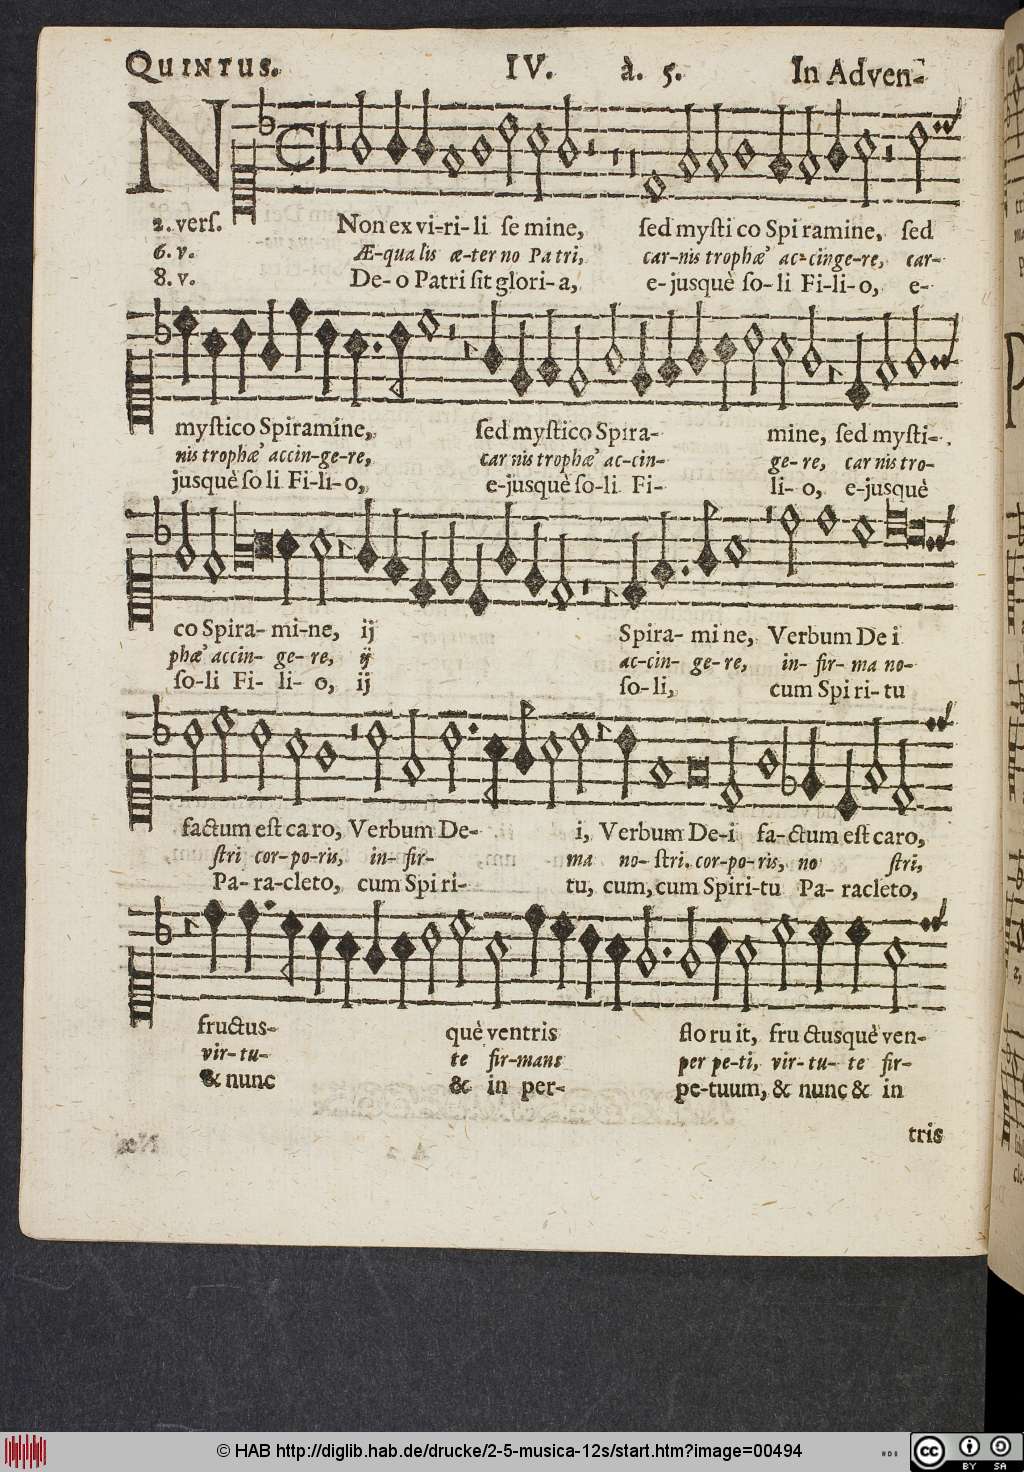 QUINTUS. IV. à. 5. In Adven-
N
2. verſ. Non ex vi-ri-li ſe mine, ſed myſti co Spi ramine, ſed
6. v. Æ-qua lis æ-ter no Pa tri, car-nis trophæ' ac-cinge-re, car-
8. v. De-o Patri ſit glori-a, e-jusquè ſo-li Fi-li-o, e-
myſtico Spiramine, ſed myſtico Spira- mine, ſed myſti-
nis trophæ' accin-ge-re, car nis trophæ' ac-cin- ge-re, car nis tro-
jusquè ſo li Fi-li-o, e-jusquè ſo-li Fi- li-o, e-jusquè
co Spira- mi-ne, ij Spira- mi ne, Verbum De i
phæ' accin- ge-re, ij ac-cin- ge-re, in-fir-ma no-
ſo-li Fi-li-o, ij ſo-li, cum Spi ri-tu
factum eſt ca ro, Verbum De- i, Verbum De-i fa-ctum eſt caro,
ſtri cor-po-ris, in-fir- ma no-ſtri. cor-po-ris, no ſtri,
Pa-ra-cleto, cum Spi ri- tu, cum, cum Spiri-tu Pa-racleto,
fructus- què ventris flo ru it, fru ctusquè ven-
vir-tu- te fir-mans per pe-ti, vir-tu-te fir-
& nunc & in per- pe-tuum, & nunc & in
tris
© HAB http://diglib.hab.de/drucke/2-5-musica-12s/start.htm?image=00494
cc BY SA